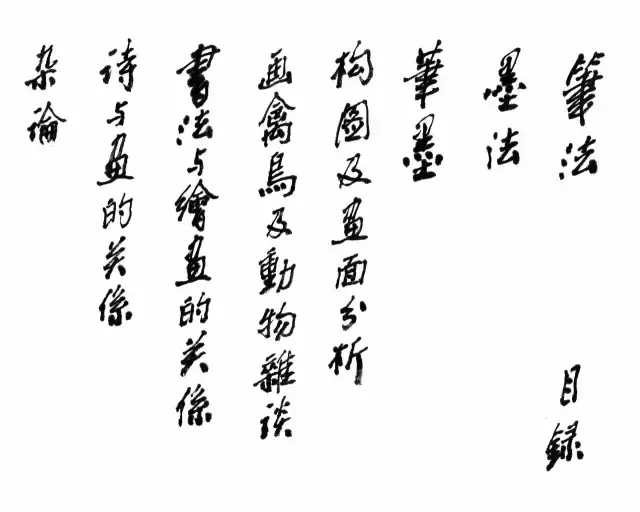 筆法
目録
墨法
筆墨
构圖及畫面分析
画禽鳥及動物雜谈
書法与繪畫的关係
诗与畫的关係
杂論